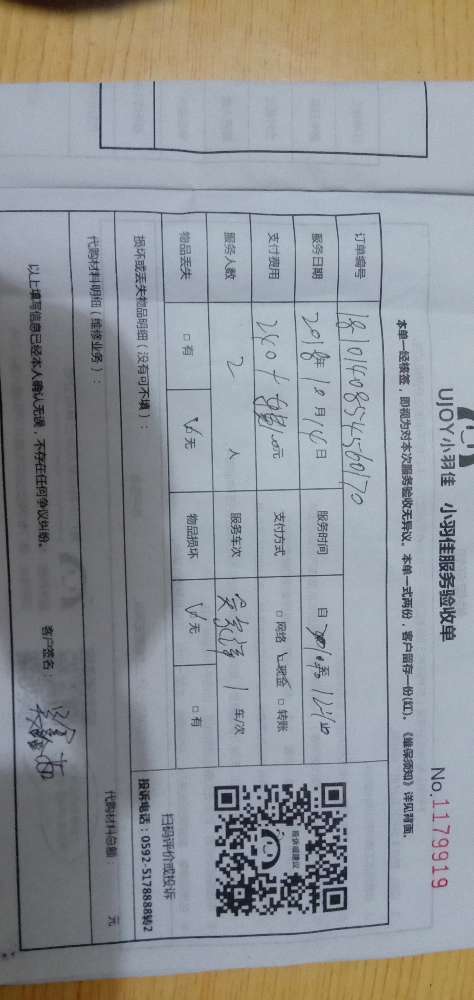 UJOY小羽佳 小羽佳服务验收单
No.1179919
本单一经核签，即视为对本次服务验收无异议。本单一式两份，客户留存一份(红)。《维保须知》详见背面。
订单编号 1810140854560170
服务日期 2018年10月14日 服务时间 日
支付费用 元 支付方式 □网络 ☑现金 □转账
服务人数 2 人 服务车次 1 车/次
物品丢失 □有 ☑无 物品损坏 ☑无 □有
扫码评价或投诉
投诉电话：0592-5178888转2
投诉或建议
损坏或丢失物品明细（没有可不填）：
代购材料明细（维修业务）： 代购材料总额： 元
以上填写信息已经本人确认无误，不存在任何争议纠纷。 客户签名：